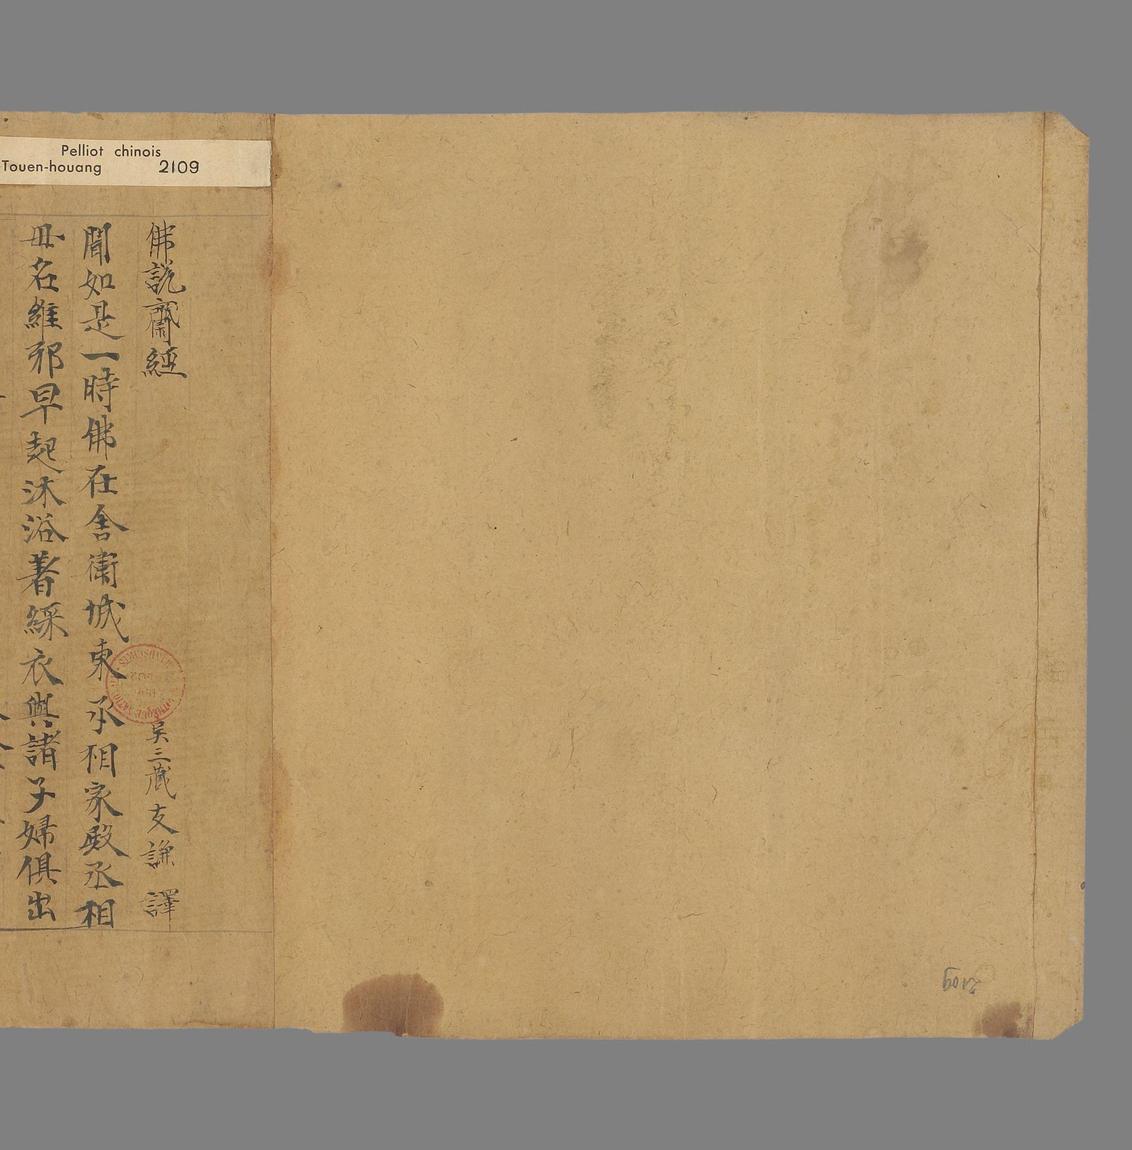 Pelliot chinois
Touen-houang 2109
佛説齋經
吳三藏支謙譯
聞如是一時佛在舍衛城東丞相家殿丞相
毋名維耶早起沐浴著綵衣與諸子婦俱出
2109